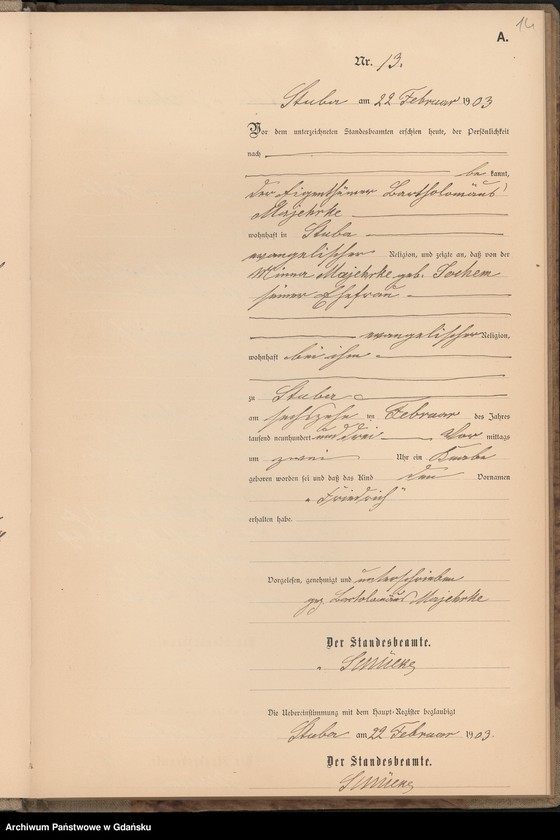 14
A.
Nr. 13.
Stuba am 22 Februar 1903
Vor dem unterzeichneten Standesbeamten erschien heute, der Persönlichkeit
nach
be kannt,
der Eigenthümer Bartholomäus
Majehrke
wohnhaft in Stuba
evangelischer Religion, und zeigte an, daß von der
Minna Majehrke geb. Jochem
seiner Ehefrau
evangelischer Religion,
wohnhaft bei ihm
zu Stuba
am sechszehn ten Februar des Jahres
tausend neunhundert und drei Vor mittags
um zwei Uhr ein Knabe
geboren worden sei und daß das Kind den Vornamen
"Friedrich"
erhalten habe.
Vorgelesen, genehmigt und unterschrieben
gez. Bartolomäus Majehrke
Der Standesbeamte.
Die Uebereinstimmung mit dem Haupt-Register beglaubigt
Stuba am 22 Februar 1903.
Der Standesbeamte.
Archiwum Państwowe w Gdańsku